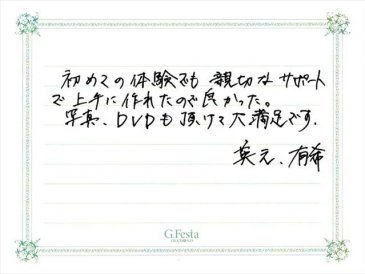 初めての体験でも親切なサポート
で上手に作れたので良かった。
写真、DVDも頂けて大満足です.
英元、有希
G.Festa